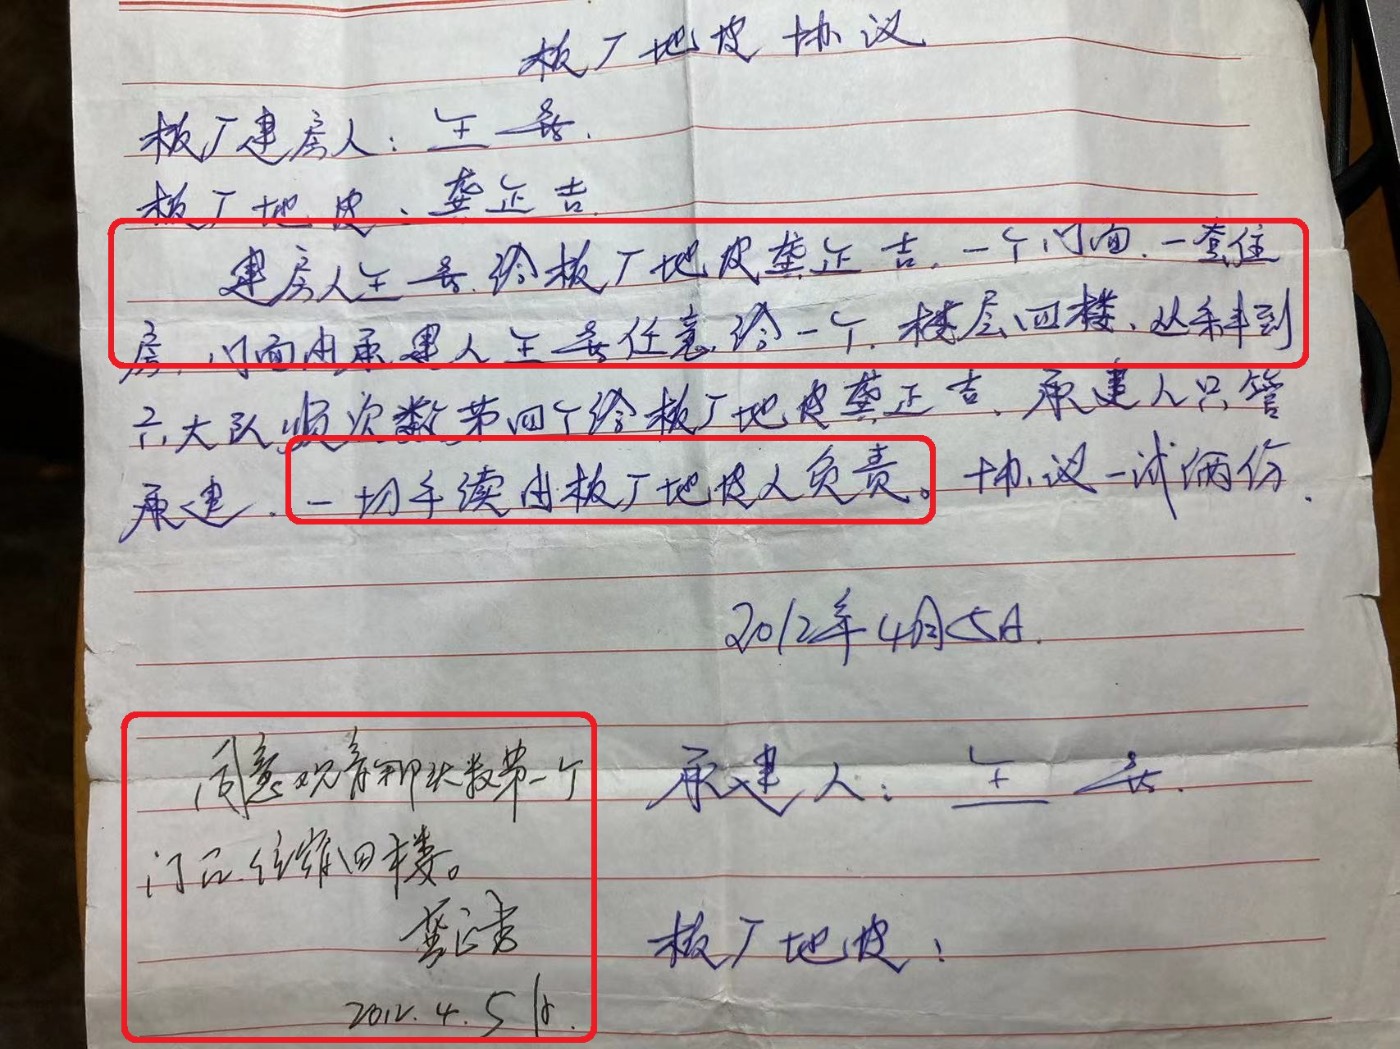 板厂地皮协议
板厂建房人：王兵.
板厂地皮：龚正吉.
建房人王兵.给板厂地皮龚正吉.一个门面.一套住
房,门面由承建人王兵任意给一个.楼层四楼、从来到
六大队顺次数第四个给板厂地皮龚正吉、承建人只管
承建.一切手续由板厂地皮人负责。协议一试俩份.
2012年4月5日.
同意观音那头数第一个
门面.住宿四楼。
龚正吉
2012.4.5日.
承建人：王兵.
板厂地皮：